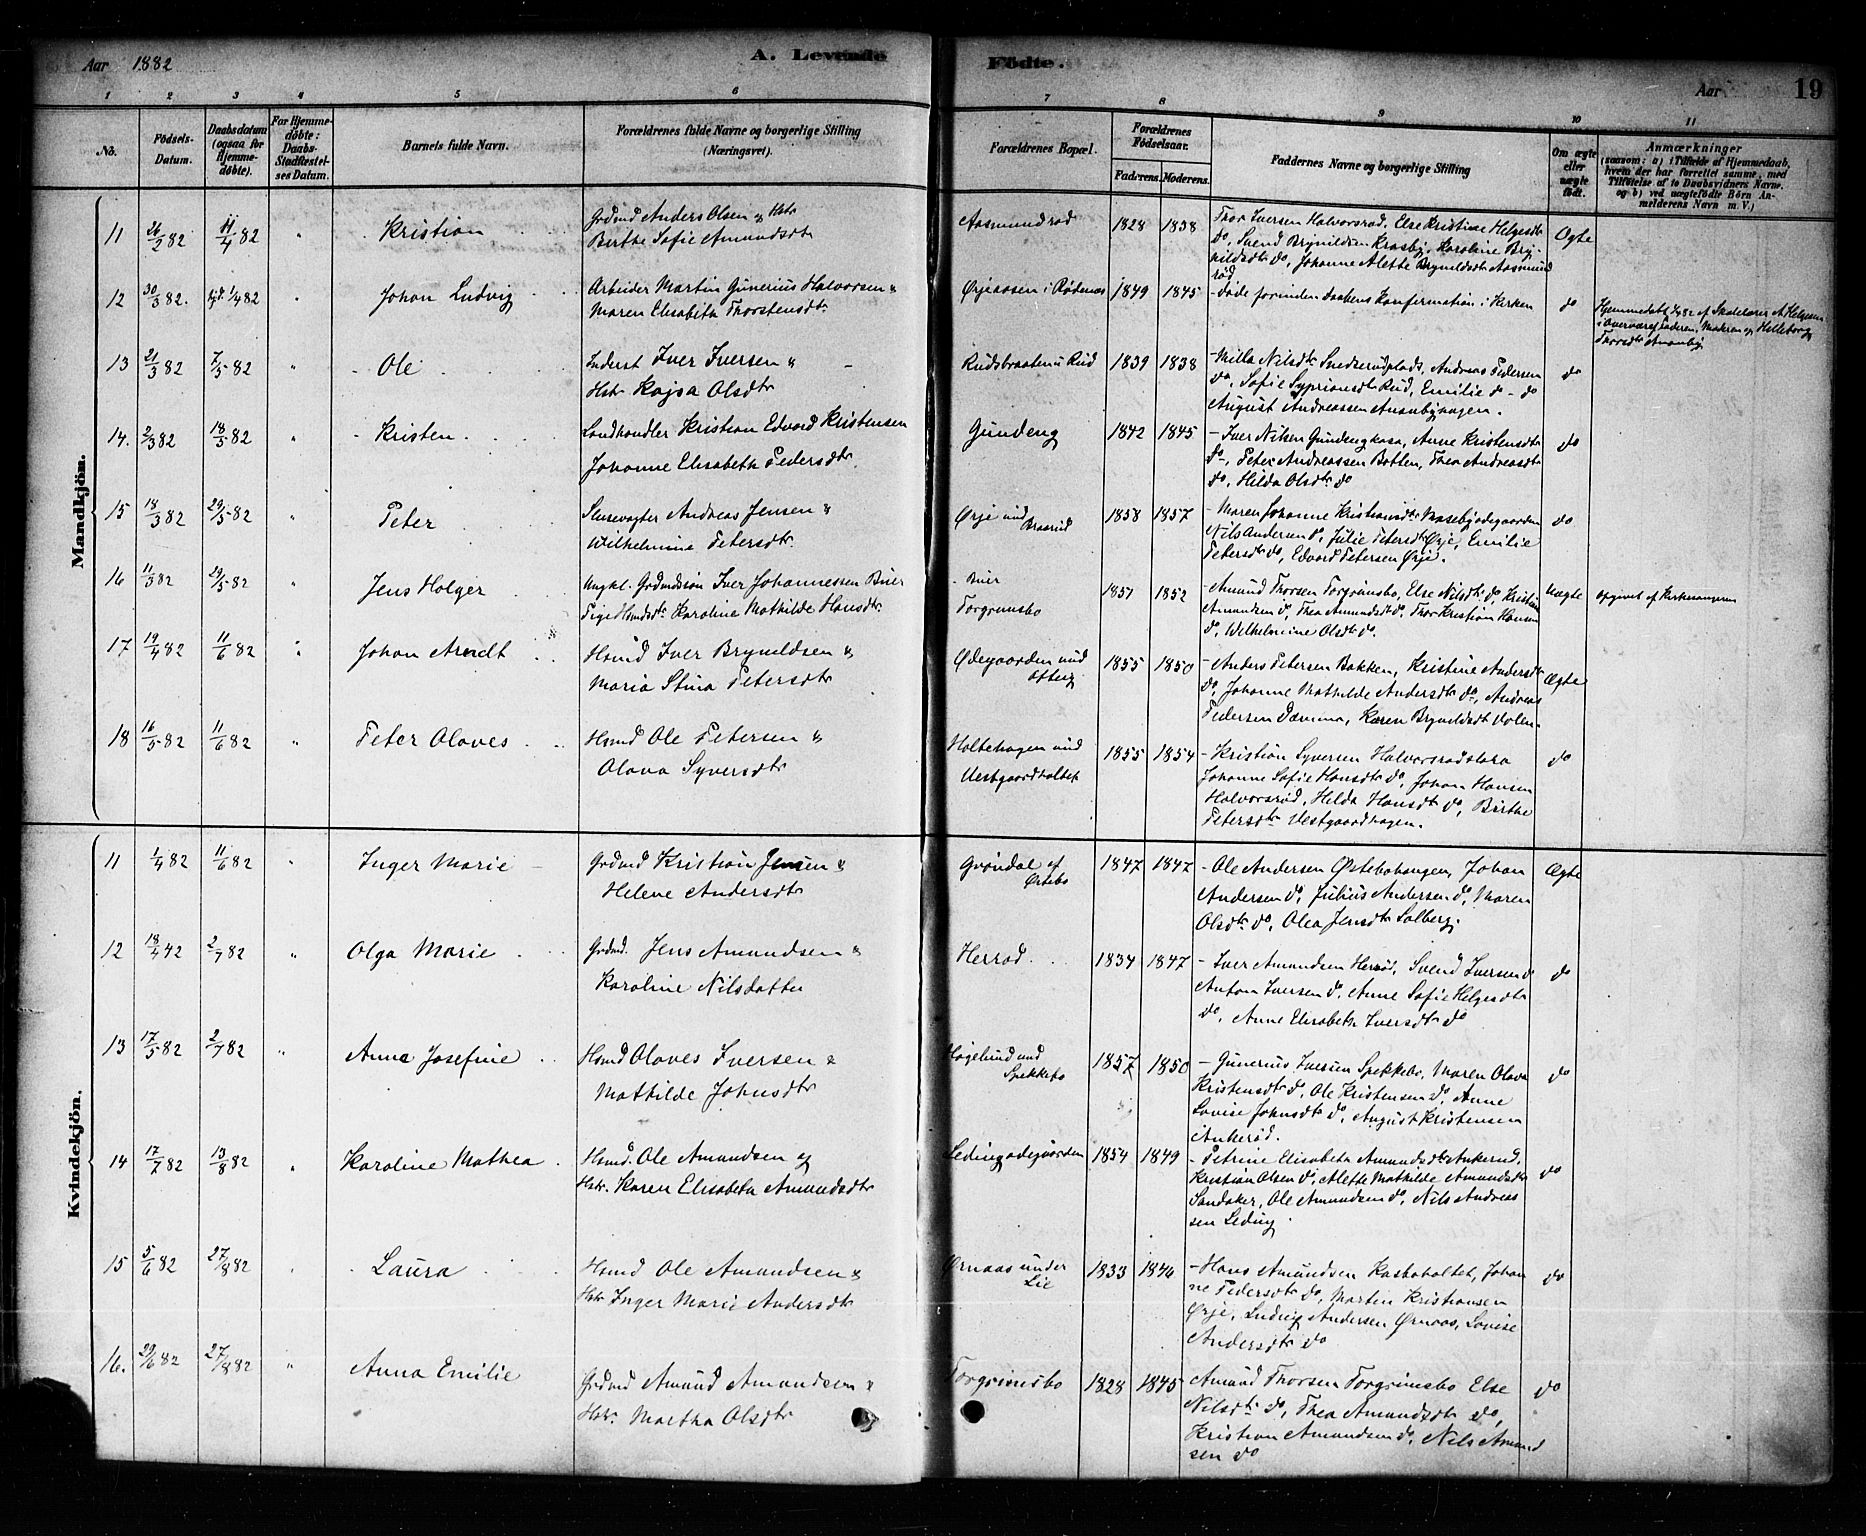 Aar 1882
A. Levende
Födte.
Aar
19
1 2 3 4 5 6 7 8 9 10 11
No.
Födsels-
Datum.
Daabsdatum
(ogsaa for
Hjemme-
döbte).
For Hjemme-
döbte:
Daabs-
Stadfæstel-
ses Datum.
Barnets fulde Navn.
Forældrenes fulde Navne og borgerlige Stilling
(Næringsvei).
Forældrenes Bopæl.
Forældrenes
Födselsaar.
Faderens. Moderens.
Faddernes Navne og borgerlige Stilling
Om ægte
eller
uægte
födt.
Anmærkninger
(saasom: a) i Tilfælde af Hjemmedaab,
hvem der har forrettet samme, med
Tilföielse af to Daabsvidners Navne,
og b) ved uægtefödte Börn An-
melderens Navn m. V.)
Mandkjön.
11 26/2 82 11/4 82 " Kristian
Grdmd Anders Olsen & Hstr
Berthe Sofie Amundsdtr
Aasmundrød 1828 1838
Thor Iversen Halvorsrød, Else Kristine Helgesdtr
do, Svend Brynildsen Krosby, Karoline Bry-
nildsdtr do, Johanne Alette Brynildsdtr Aasmund
rød
Ægte
12 30/3 82. 1/4 82 " Johan Ludvig
Arbeider Martin Gunerius Halvorsen &
Maren Elisabeth Thorstensdtr
Ørjeaasen i Rødenes 1849 1845
- døde forinden Daabens Konfirmation i Kirken
do
Hjemmedøbt 1/4 82 af Skolelærer A Helgesen
i Overvær af Faderen, Moderen og Helleborg
Thorsdtr Anonby
13 21/3 82 7/5 82 " - Ole
Inderst Iver Iversen &
Hstr Kajsa Olsdtr
Rudsbraaten u Rud 1839 1838
- Milla Nilsdtr Snedserødplads, Andreas Pedersen
do, Sofie Sypriansdtr Rud, Emilie do - do
August Andreassen Anonbyhagen.
do
14. 2/3 82 18/5 82 " - Kristen
Landhandler Kristian Edvard Kristensen
Johanne Elisabeth Pedersdtr
Gundeng 1842 1845
- Iver Nilsen Gundengkasa, Anne Kristensdtr
do, Peter Andreassen Botten, Thea Andreasdtr
do, Hilda Olsdtr do
do
15 18/3 82 29/5 82 " Peter
Slusevogter Andreas Jensen &
Wilhelmine Petersdtr.
Ørje und
Braarud 1858 1857
- Maren Johanne Kristiansdtr Mosebyødegaarden
Nils Andersen do, Julie Petersdtr Ørje, Emilie
Petersdtr do, Edvard Petersen Ørje.
do
16 11/3 82 29/5 82 " Jens Holger
Ungkl. Grdmdssøn Iver Johannessen Buer
Pige Hsmdsdtr Karoline Mathilde Hansdtr.
- Buer
Torgrimsbo 1851 1852
- Amund Thorsen Torgrimsbo, Else Nilsdtr do, Kristian
Amundsen do, Thea Amundsdtr do, Thor Kristian Hansen
do, Wilhelmine Olsdtr do.
Uægte
opgivet af Kirkesangeren
17 19/4 82 11/6 82 " Johan Arndt
Hsmd Iver Bryneldsen &
Maria Stina Petersdtr
Ødegaarden und
Otteig 1855 1850
- Anders Petersen Bakken, Kristine Andersdtr
do, Johanne Mathilde Andersdtr do, Andreas
Pedersen Damma, Karen Bryneldsdtr Volen.
Ægte
18 16/5 82 11/6 82 " Peter Olaves
Hsmd Ole Petersen &
Olava Syversdtr
Holtehagen und
Vestgaardholtet 1855 1854
- Kristian Syversen Halvorsrødsløra
Johanne Sofie Hansdtr do, Johan Hansen
Halvorsrød, Helda Hansdtr do, Birthe
Petersdtr Vestgaardhagen.
do
Kvindekjön.
11 1/4 82 11/6 82 " Inger Marie
Grdmd Kristian Jensen &
Helene Andersdtr
Grøndal af
Østebo 1847 1847
- Ole Andersen Østebohaugen, Johan
Andersen do, Julius Andersen do, Maren
Olsdtr do, Olea Jensdtr Solberg.
Ægte
12 18/4 42 2/7 82 " Olga Marie
Grdmd. Jens Amundsen &
Karoline Nilsdatter
Herrød 1834 1847
- Iver Amundsen Herrød, Svend Iversen do
Anton Iversen do, Anne Sofie Helgesdtr
do, Anne Elisabeth Iversdtr do
do
13 17/5 82 2/7 82 " Anna Josefine
Hsmd Olaves Iversen &
Mathilde Johnsdtr
Høgelund und
Spekkebo 1857 1850
- Gunerius Iversen Spekkebo, Maren Olava
Kristensdtr do, Ole Kristensen do, Anne
Lovise Johnsdtr do, August Kristensen
Ankerød.
do
14 17/7 82 13/8 82 " Karoline Mathea
Hsmd. Ole Amundsen og
Hstr. Karen Elisabeth Amundsdtr
Ledingødegaarden 1854 1849
- Petrine Elisabeth Amundsdtr Ankerud,
Kristian Olsen do, Alette Mathilde Amundsdtr
Sandaker, Ole Amundsen do, Nils Andreas
sen Leding.
do
15 5/6 82 27/8 82 " Laura
Hsmd Ole Amundsen &
Hstr Inger Marie Andersdtr
Ørnaas under
Lie 1833 1846
- Hans Amundsen Kasboholtet, Johan
ne Pedersdtr do, Martin Kristiansen
Ørje, Ludvig Andersen Ørnaas, Lovise
Andersdtr do
do
16. 29/6 82 27/8 82 " Anna Emilie
Grdmd Amund Amundsen &
Hstr. Martha Olsdtr
Torgrimsbo 1828 1845
Amund Thorsen Torgrimsbo Else
Nilsdtr do, Thea Amundsdtr do,
Kristian Amundsen do, Nils Amund
sen do
do